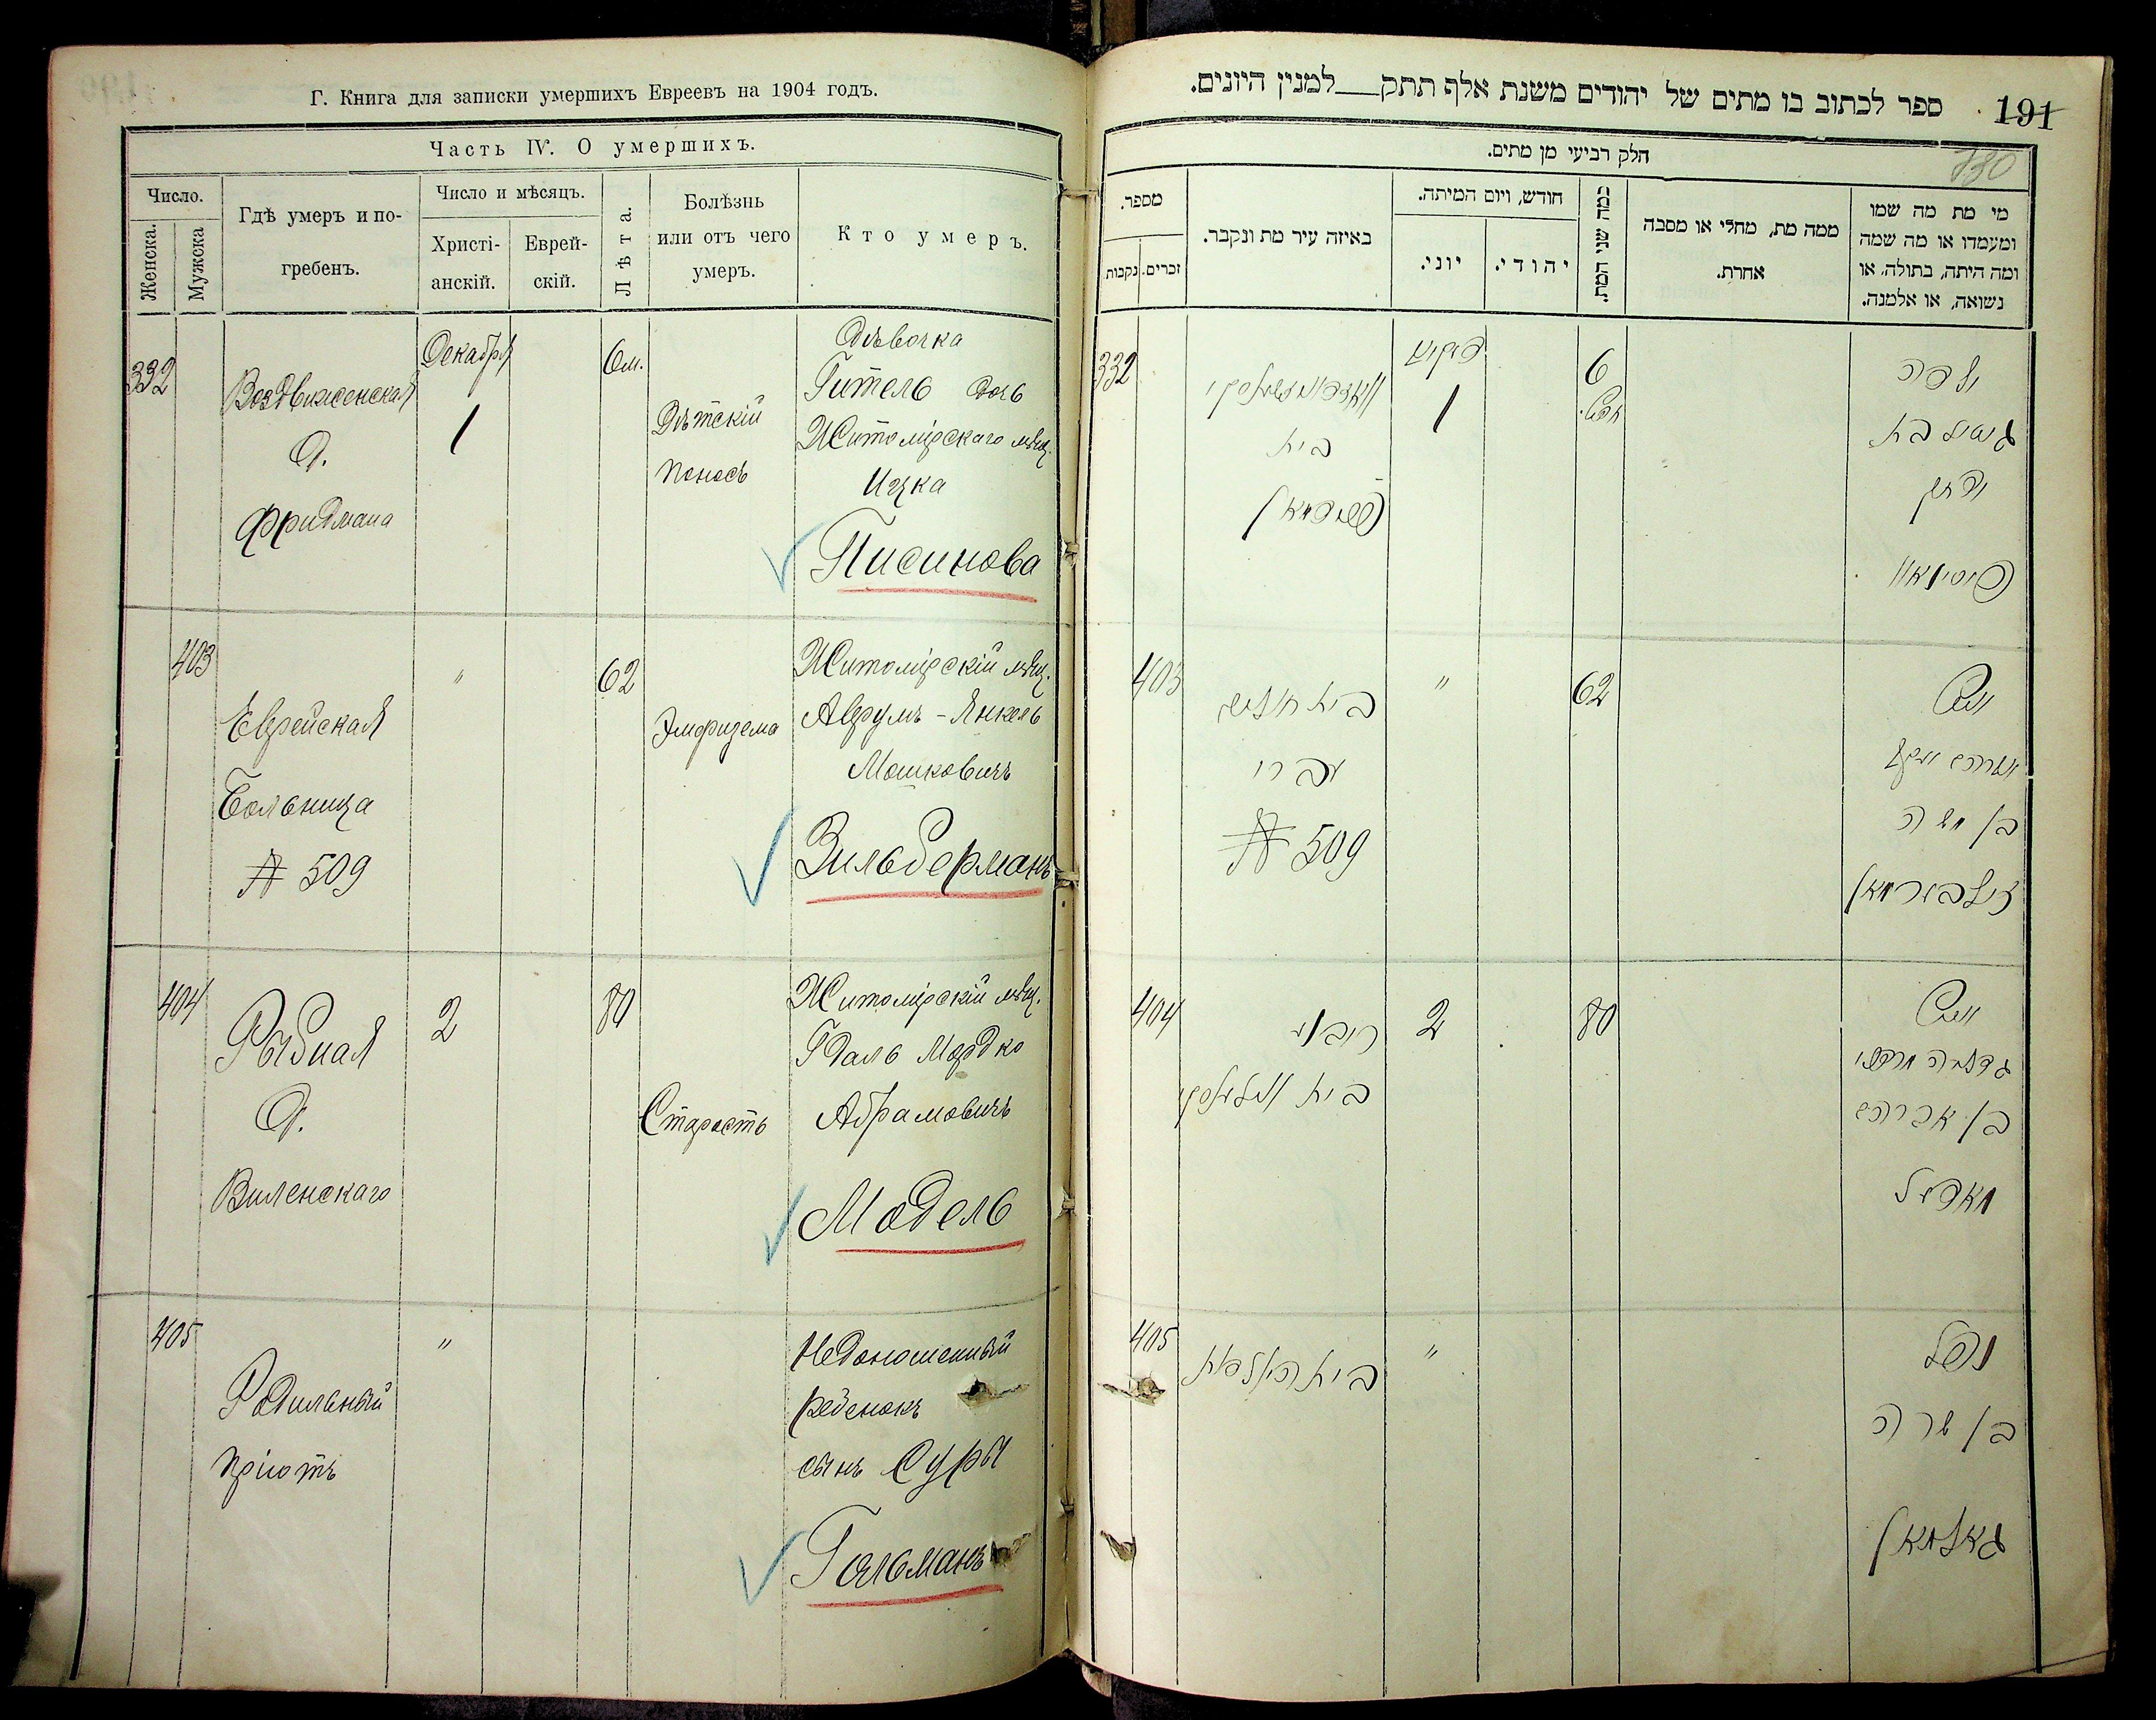 Г. Книга для записки умершихъ Евреевъ на 1904 годъ.
Часть IV. О умершихъ.
Число.
Женска.
Мужска
Гдѣ умеръ и по-
гребенъ.
Число и мѣсяцъ.
Христі-
анскій.
Еврей-
скій.
Лѣта.
Болѣзнь
или отъ чего
умеръ.
Кто умеръ.
332
Воздвиженская
д.
Фридмана
Декабря
1
6 м.
Дѣтскій
поносъ
Дѣвочка
Гитель дочь
Житомірскаго мѣщ.
Ицка
Писинова
403
Еврейская
Больница
№ 509
"
62
Эмфизема
Житомірскій мѣщ.
Аврумъ-Янкель
Мошковичъ
Зильберманъ
404
Рыбная
д.
Виленскаго
2
80
Старость
Житомірскій мѣщ.
Гдаль Мордко
Абрамовичъ
Модель
405
Родильный
пріютъ
"
Недоношенный
ребенокъ
сынъ Суры
Гольманъ
ספר לכתוב בו מתים של יהודים משנת אלף תתק למנין היונים.
191
130
חלק רביעי מן מתים.
מספר.
זכרים.
נקבות
באיזה עיר מת ונקבר.
חודש, ויום המיתה.
יהודי.
יוני.
כמה שני המת.
ממה מת, מחלי או מסבה
אחרת.
מי מת מה שמו
ומעמדו או מה שמה
ומה היתה, בתולה, או
נשואה, או אלמנה.
332
בית
פרידמאן
1
6
חדש.
ילדה
גיטיל בת
יצחק
403
בית חולים
עברי
№ 509
"
62
איש
אברהם יעקב
בן משה
זילבערמאן
404
ריבני
בית ווילענסקי
2
80
איש
גדליה מרדכי
בן אברהם
מאדיל
405
בית היולדות
"
נפל
בן שרה
גאלמאן